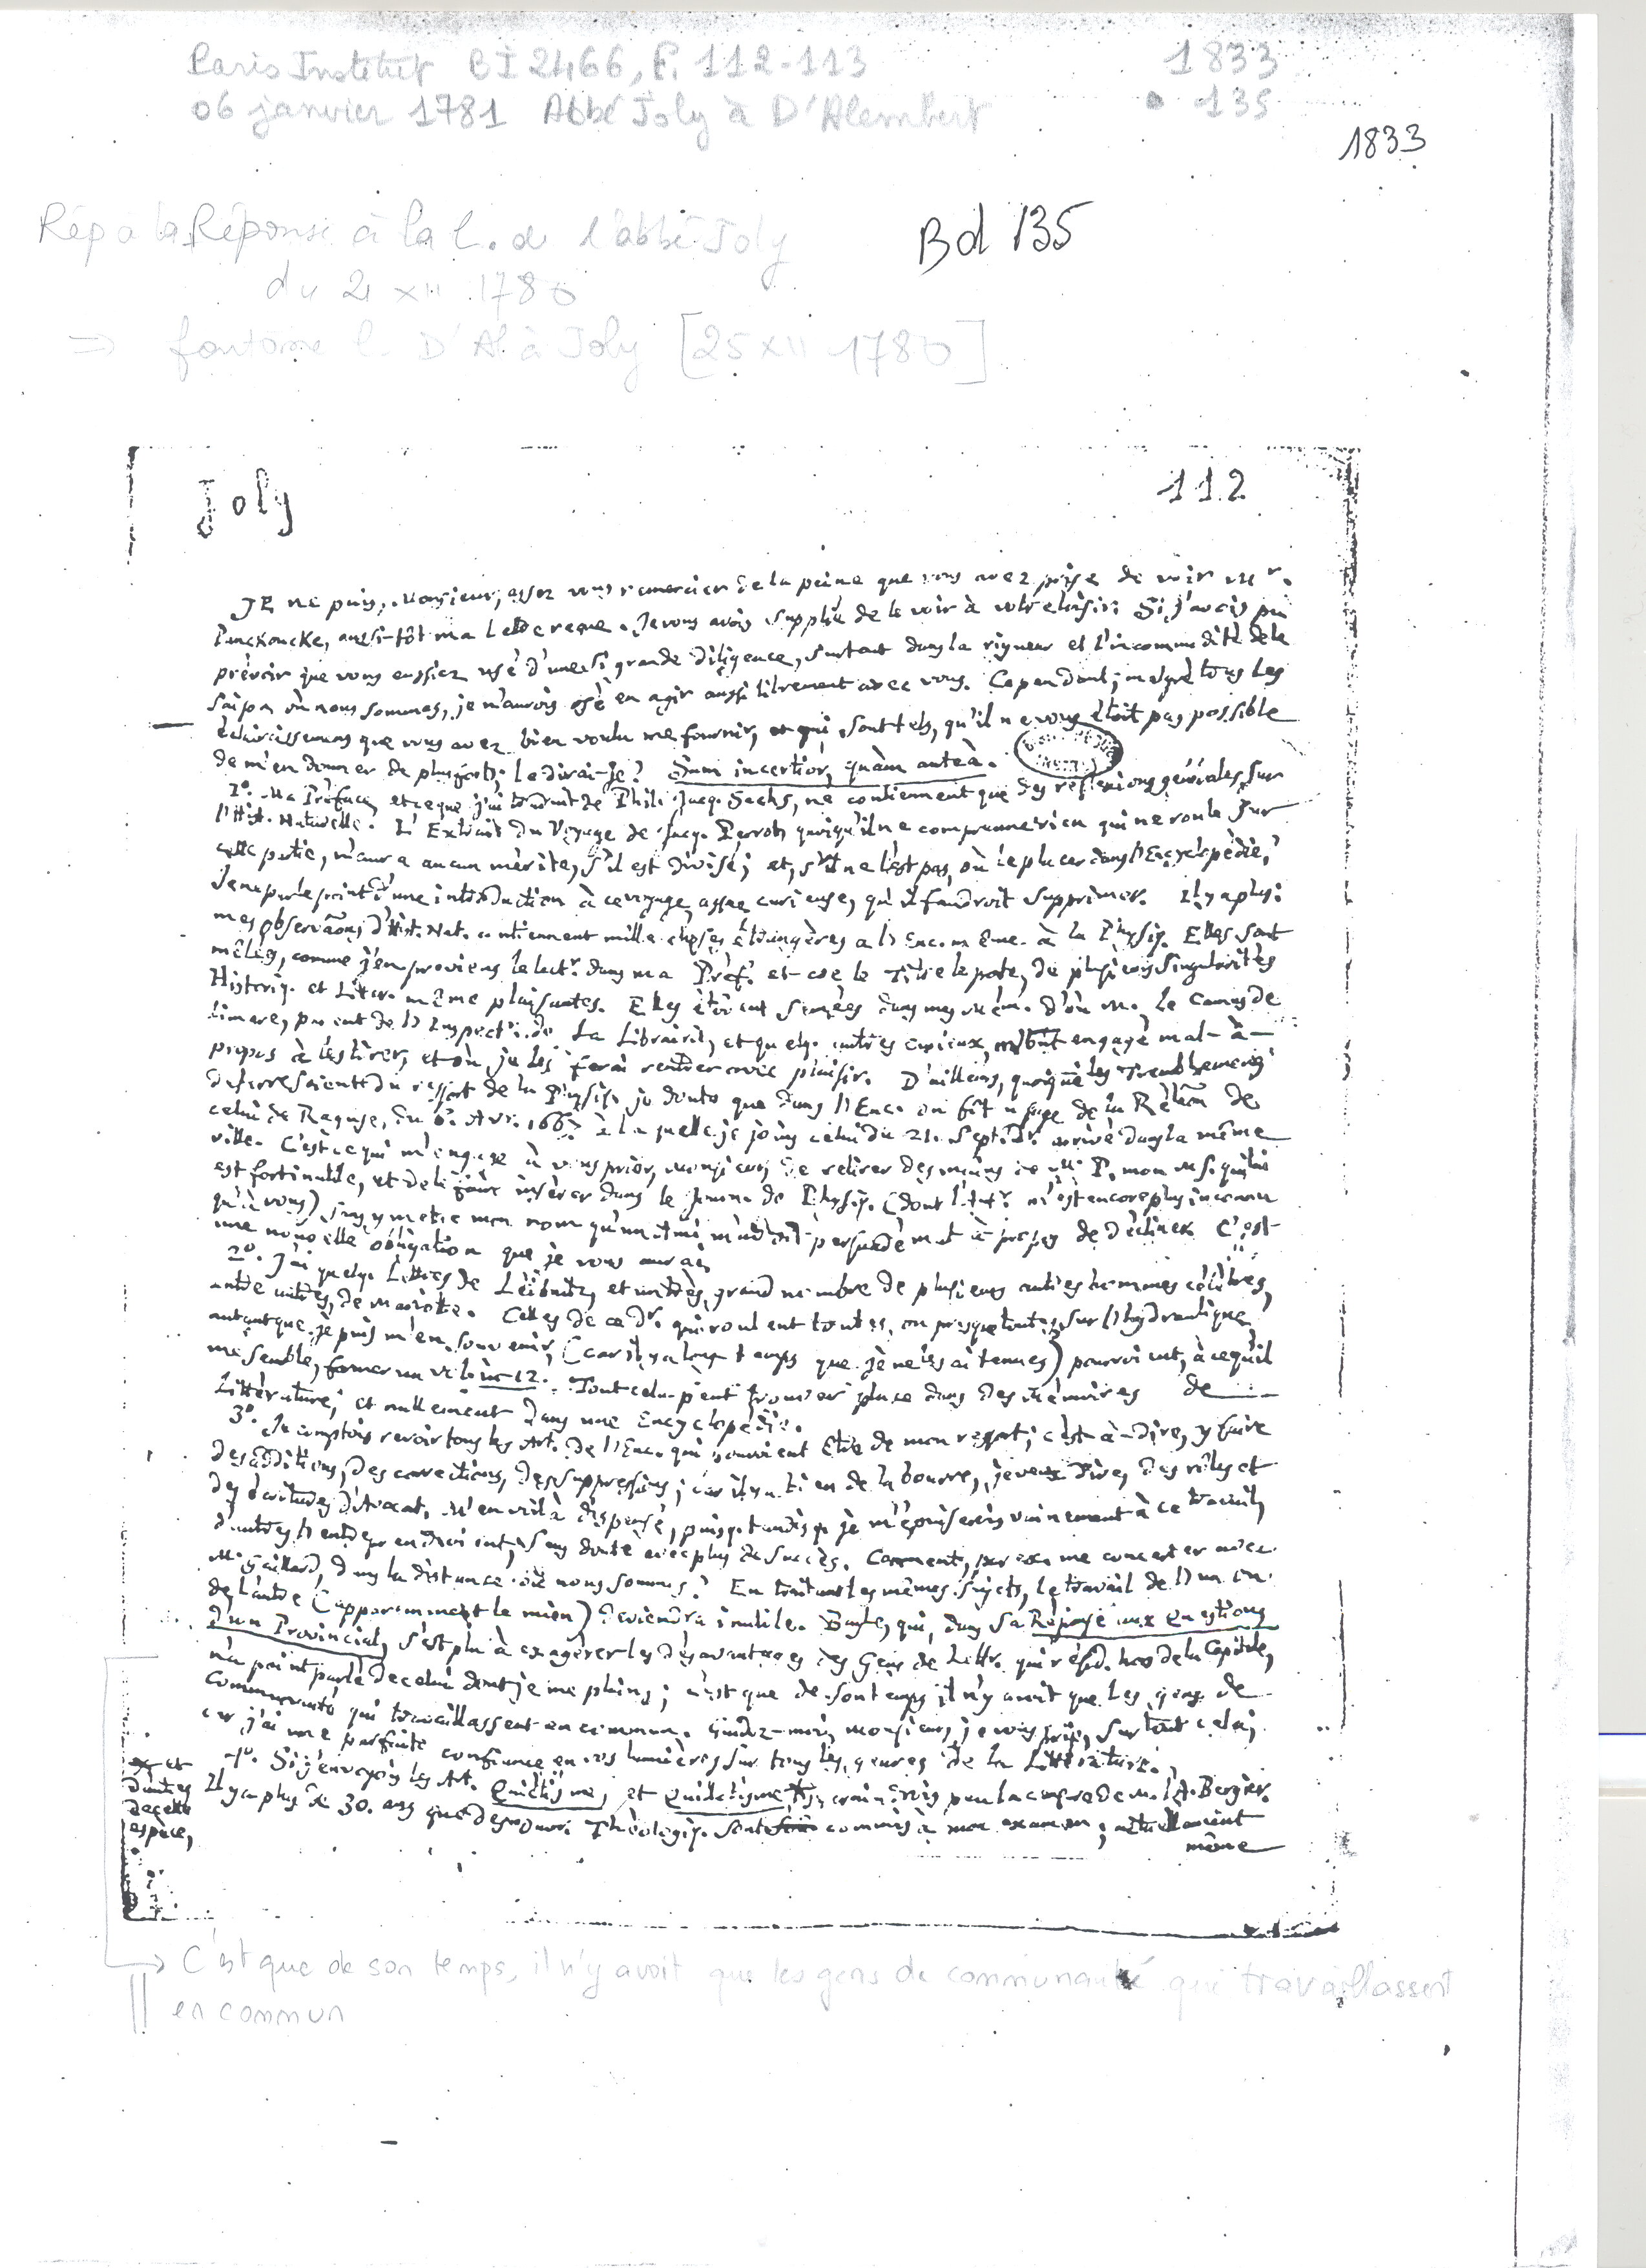 Paris Institut BI 2466, F. 112-113 1833
06 janvier 1781 Abbé Joly à D'Alembert 135
1833
Rép à la Réponse à la l. de l'abbé Joly
Bd 135
du 2 XII 1780
⇒ fantôme l. D'Al. à Joly [25 XII 1780]
Joly 112
JE ne puis, Monsieur, assez vous remercier de la peine que vous avez prise de voir Mr.
Panckoucke, aussi-tôt ma lettre reçue. Je vous avois supplié de le voir à votre loisir. Si j'avois pu
prévoir que vous eussiez usé d'une si grande diligence, surtout dans la rigueur et l'incommodité de la
saison où nous sommes, je n'aurois osé en agir aussi librement avec vous. Cependant, malgré tous les
éclaircissemens que vous avez bien voulu me fournir, et qui sont tels, qu'il ne vous étoit pas possible
de m'en donner de plus forts. Le dirai-je? Sum incertior, quàm anteà.
1°. Ma Préface, et ce que j'ai traduit de Phili. Jacq. Sachs, ne contiennent que des réflexions générales sur
l'Hist. Naturelle. L'Extrait du Voyage de Jacq. quoiqu'il ne comprenne rien qui ne roule sur
cette partie, n'aura aucun mérite, s'il est divisé; et, s'il ne l'est pas, où le placer dans l'Encyclopédie?
Je ne parle point d'une introduction à ce voyage, assez curieuse, qu'il faudroit supprimer. Il y a plus:
mes observãons d'Hist. Nat. contiennent mille choses étrangères a l'Enc. même à la Physiq. Elles sont
mêlées, comme j'en préviens le lectr. dans ma Préf. et que le Titre le porte, de plusieurs singularités
Historiq. et Littér. même plaisantes. Elles étoient semées dans mes Mém. d'où M. Le Camus de
Limare, parent de l'Inspectr. de La Librairie, et quelq. autres curieux, m'ont engagé mal-à-
propos à les tirer, et où je les ferai rentrer avec plaisir. D'ailleurs, quoique les Tremblemens
de terre soient du ressort de la Physiq. je doute que dans l'Enc. on fît usage de la Relãon de
celui de Raguse, du 6. Avr. 1667 à laquelle je joins celui du 21. Septbr. arrivé dans la même
ville. C'est ce qui m'engage à vous prier, Monsieur, de retirer des mains de Mr. P. mon Ms. qui lui
est fort inutile, et de le faire insérer dans le Journ. de Physiq. (dont l'Autr. m'est encore plus inconnu
qu'à vous) j'ay mis mon nom qu'un Ami m'avoit persuadé mal à propos de décliner. C'est
une nouvelle obligation que je vous aurai.
2°. J'ai quelq. Lettres de Leibnitz, et un très grand nombre de plusieurs autres hommes célèbres,
entre autres, de Mariotte. Celles de ce dr. qui roulent toutes, ou presque toutes, sur l'hydraulique,
autant que je puis m'en souvenir, (car il y a long temps que je ne les ai tenues) pourroient, à ce qu'il
me semble, former un vol. in-12. Tout cela peut trouver place dans des Mémoires de
Littérature, et nullement dans une Encyclopédie.
3°. Je comptois revoir tous les Art. de l'Enc. qui pouvoient être de mon ressort; c'est-à-dire, y faire
des additions, des corrections, des suppressions; car il y a bien de la bourre, je veux dire, des rôles et
des écritures d'Avocat. M'en voilà dispensé, puisq. tandis q. je m'épuiserois vainement à ce travail,
d'autres l'entreprendroient, sans doute avec plus de succès. Comment, par ex. me concerter avec
Mr. Gaillard, dans la distance où nous sommes? En traitant les mêmes sujets, le travail de l'un ou
de l'autre (apparemment le mien) deviendra inutile. Bayle, qui, dans sa Réponse aux questions
d'un Provincial, s'est plu à exagérer les désavantages des Gens de Lettr. qui résid. hors de la Capitale,
n'a point parlé de celui dont je me plains; c'est que de son temps il n'y avoit que les gens de
communauté qui travaillassent en commun. Guidez-moi, Monsieur, je vous prie, sur tout cela;
car j'ai une parfaite confiance en vos lumières sur tous les genres de la Littérature.
4°. Si j'envoyois les Art. Quiétisme, et Quiétisme, je craindrois peu la censure de M. l'A. Bergier.
et
d'autres
de cette
espèce,
Il y a plus de 30. ans que des ouvr. Théologiq. sont commis à mon examen; actuellement
même
→ C'est que de son temps, il n'y avoit que les gens de communauté qui travaillassent
en commun